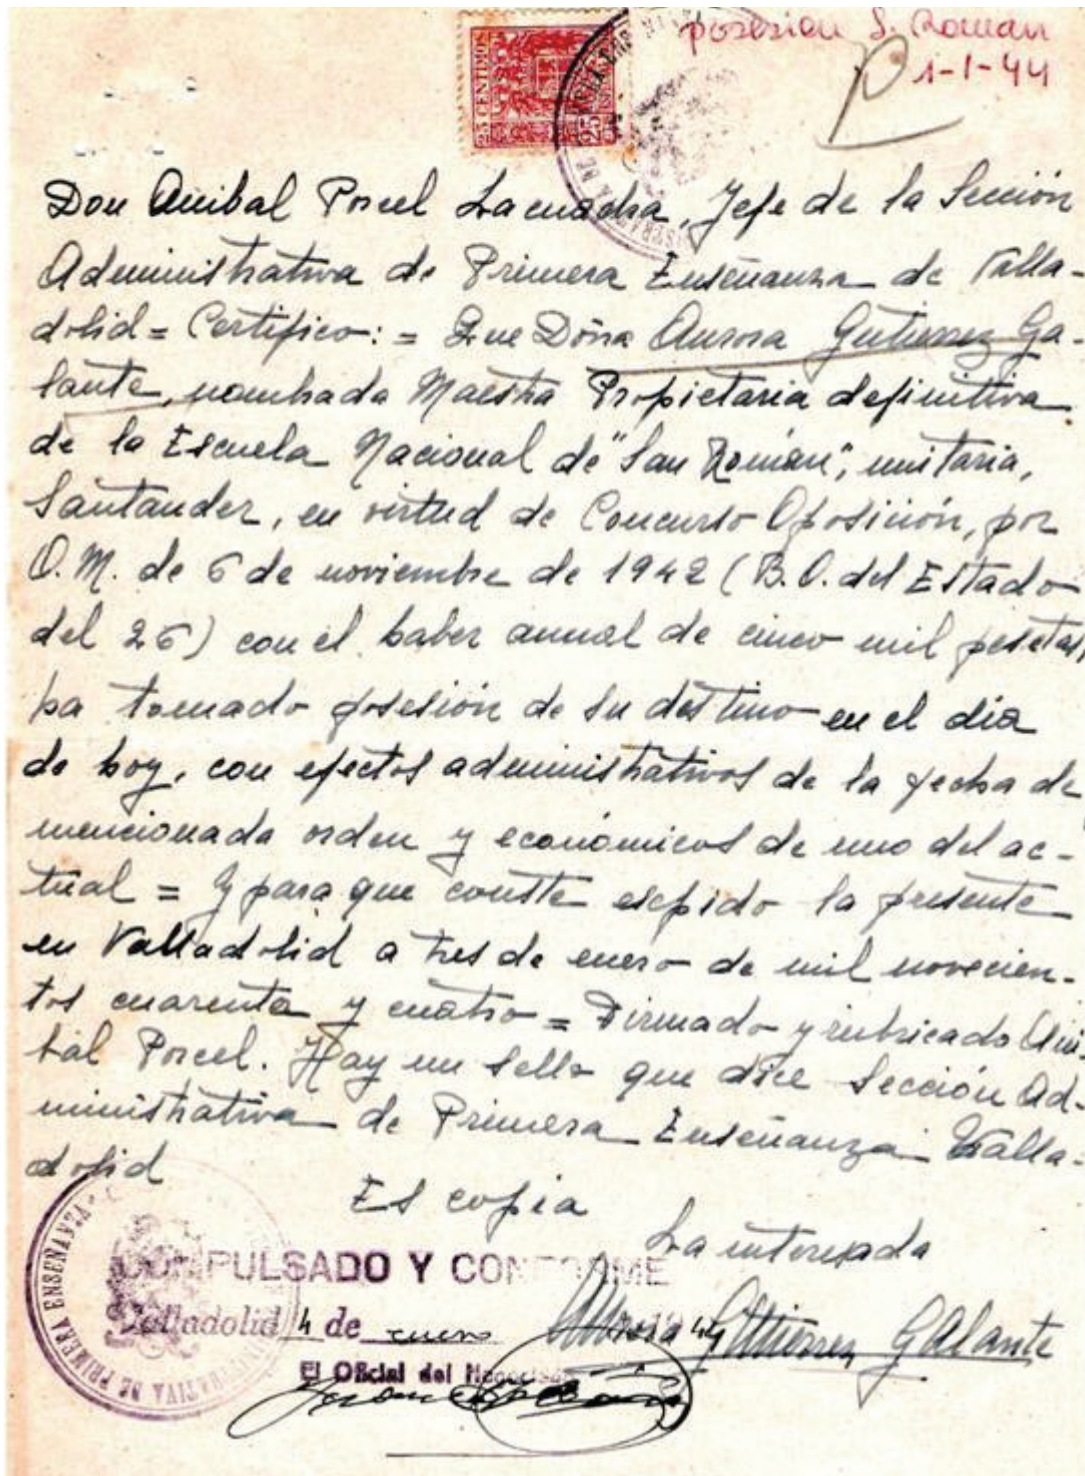 posesion S. Roman
1-1-44
25 CENTIMOS
25
Don Anibal Porcel Lacuadra, Jefe de la Sección
Administrativa de Primera Enseñanza de Valla-
dolid = Certifico: = Que Doña Aurora Gutierrez Ga-
lante, nombrada Maestra Propietaria definitiva
de la Escuela Nacional de "San Román", unitaria,
Santander, en virtud de Concurso Oposición, por
O. M. de 6 de noviembre de 1942 (B. O. del Estado
del 26) con el haber anual de cinco mil pesetas,
ha tomado posesión de su destino en el dia
de hoy, con efectos administrativos de la fecha de
mencionada orden y económicos de uno del ac-
tual = Y para que conste espido la presente
en Valladolid a tres de enero de mil novecien-
tos cuarenta y cuatro = Firmado y rubricado Ani-
bal Porcel. Hay un sello que dice Sección Ad-
ministrativa de Primera Enseñanza Valla-
dolid
Es copia
La interesada
COMPULSADO Y CONFORME
Valladolid 4 de enero 44
Aurora Gutierrez Galante
El Oficial del Negociado
ADMINISTRATIVA DE PRIMERA ENSEÑANZA